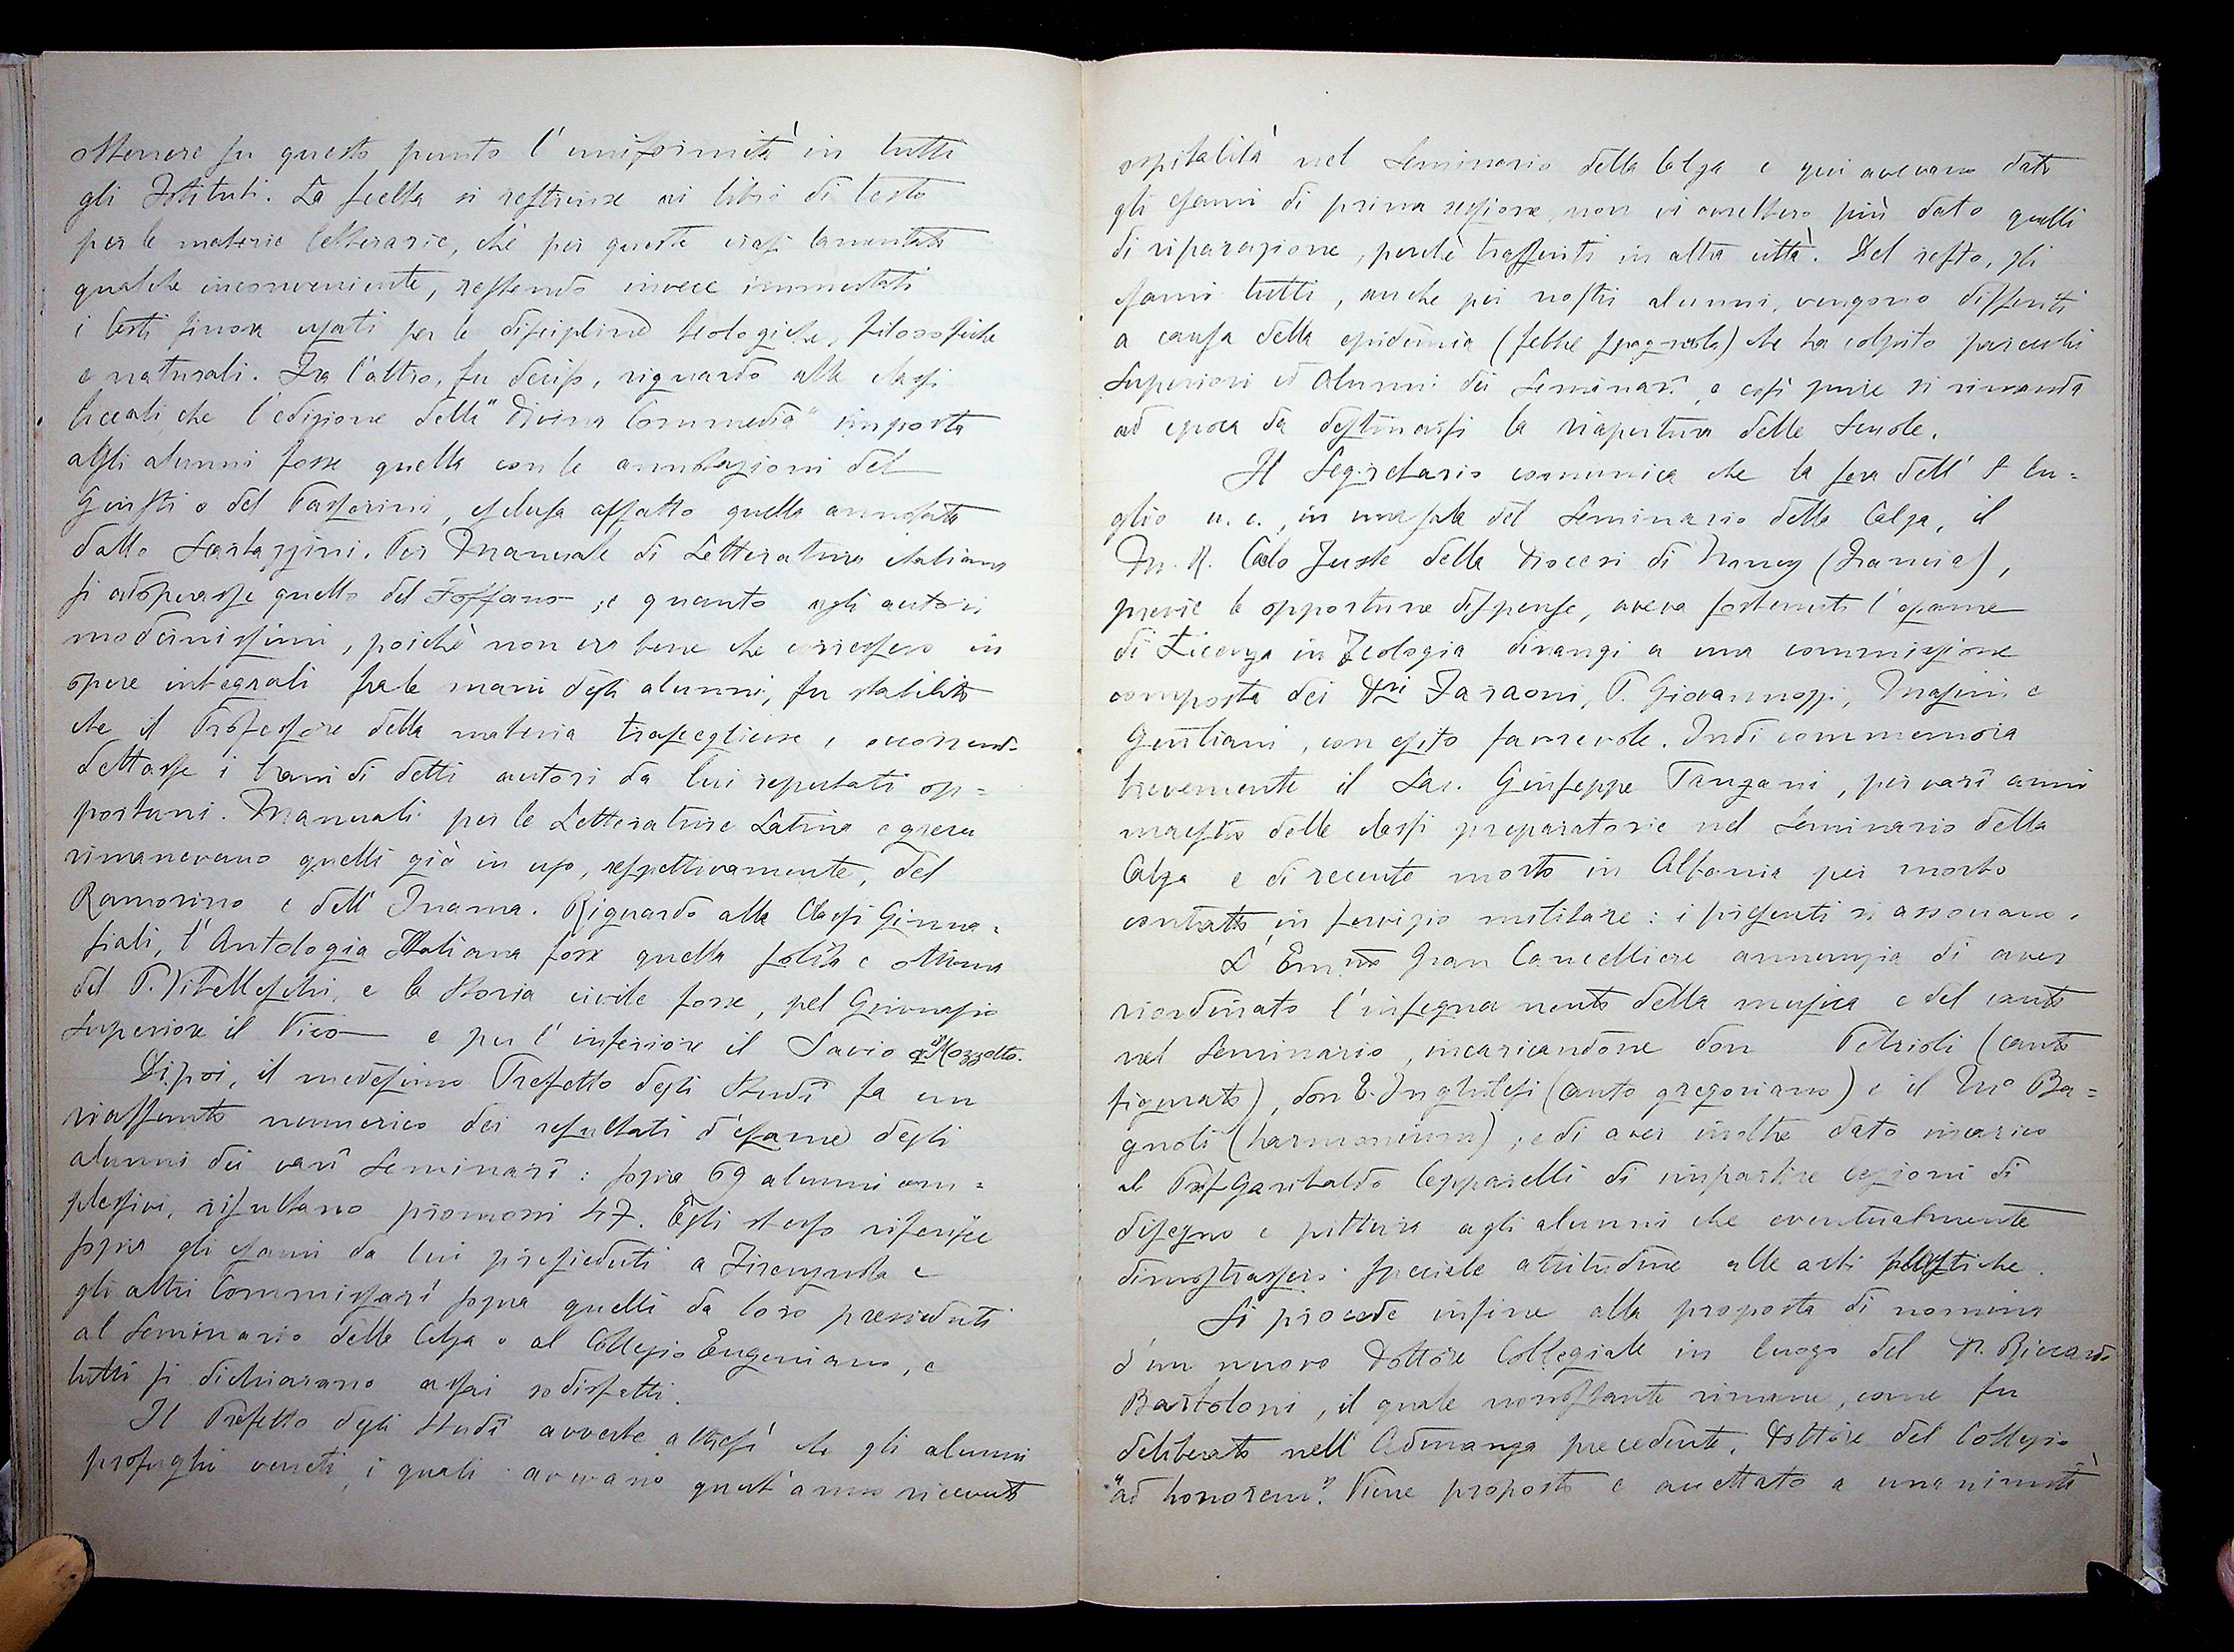 ottenere su questo punto l'uniformità in tutti
gli Istituti. La scelta si restrinse ai libri di testo
per le materie letterarie, chè per queste erasi lamentato
qualche inconveniente, restando invece immutati
i testi finora usati per le discipline teologiche, filosofiche
e naturali. Fra l'altro, fu deciso, riguardo alle classi
liceali, che l'edizione della "Divina Commedia" imposta
agli alunni fosse quella con le annotazioni del
Giusti o del Passerini, esclusa affatto quella annotata
dallo Scartazzini. Per Manuale di Letteratura italiana
si adoperasse quello del Foffano; e quanto agli autori
modernissimi, poichè non era bene che corressero in
opere integrali fra le mani degli alunni, fu stabilito
che il Professore della materia trascegliesse e occorrendo
dettasse i brani di detti autori da lui reputati op=
portuni. Manuali per le Letterature Latina e greca
rimanevano quelli già in uso, rispettivamente, del
Ramorino e dell'Inama. Riguardo alla Classi Ginna=
siali, l'Antologia Italiana fosse quella solita e ottima
del P. Vitelleschi, e la Storia civile fosse, pel Ginnasio
Superiore il Vico e per l'inferiore il Savio e il Mozzotto.
Dipoi, il medesimo Prefetto degli Studî fa un
riassunto numerico dei resultati d'esame degli
alunni dei varî Seminarî: sopra 69 alunni com=
plessivi, risultano promossi 47. Egli stesso riferisce
sopra gli esami da lui presieduti a Firenzuola e
gli altri Commissarî sopra quelli da loro presieduti
al Seminario della Calza o al Collegio Eugeniano, e
tutti si dichiarano assai sodisfatti.
Il Prefetto degli Studî avverte altresì che gli alunni
profughi veneti, i quali avevano quest'anno ricevuto
ospitalità nel Seminario della Calza e qui avevano dato
gli esami di prima sessione, non vi avrebbero più dato quelli
di riparazione, perchè trasferiti in altra città. Del resto, gli
esami tutti, anche pei nostri alunni, vengono differiti
a causa della epidemia (febbre spagnuola) che ha colpito parecchi
Superiori ed Alunni dei Seminarî, e così pure si rimanda
ad epoca da destinarsi la riapertura delle Scuole.
Il Segretario comunica che la sera dell'8 lu=
glio u. c., in una sala del Seminario della Calza, il
M. R. Carlo Juste della Diocesi di Nancy (Francia),
previe le opportune dispense, aveva sostenuto l'esame
di Licenza in Teologia dinanzi a una commissione
composta dei Dri Faraoni, P. Giovannozzi, Masini e
Giuliani, con esito favorevole. Indi commemora
brevemente il Sac. Giuseppe Panzani, per varî anni
maestro delle classi preparatorie nel Seminario della
Calza e di recente morto in Albania per morbo
contratto in servizio militare: i presenti si associano.
L'Emmo Gran Cancelliere annunzia di aver
riordinato l'insegnamento della musica e del canto
nel Seminario, incaricandone don Petrioli (canto
figurato), don E. Inghilesi (canto gregoriano) e il Mo Ba=
gnoli (harmonium); e di aver inoltre dato incarico
al Prof Garibaldo Cepparelli di impartire lezioni di
disegno e pittura agli alunni che eventualmente
dimostrassero speciale attitudine alle arti plastiche.
Si procede infine alla proposta di nomina
d'un nuovo Dottore Collegiale in luogo del P. Riccardo
Bartoloni, il quale nonostante rimane, come fu
deliberato nell'Adunanza precedente, Dottore del Collegio
"ad honorem". Viene proposto e accettato a unanimità